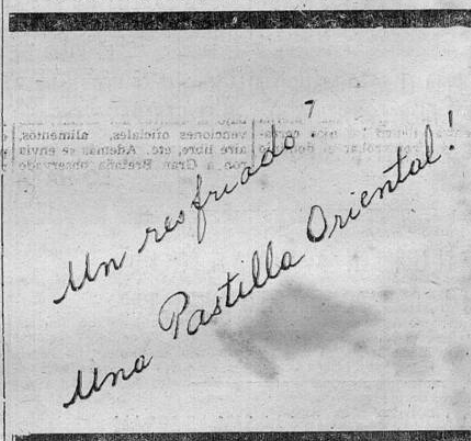 Un resfriado?
Una Pastilla Oriental!